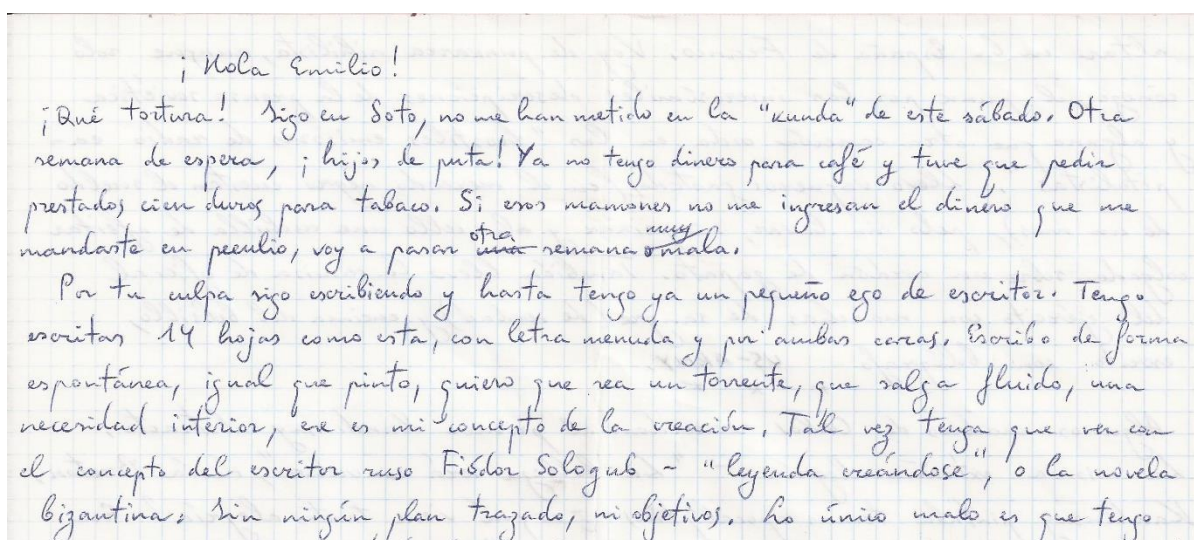 ¡Hola Emilio!
¡Qué tortura! Sigo en Soto, no me han metido en la "kunda" de este sábado. Otra
semana de espera, ¡hijos de puta! Ya no tengo dinero para café y tuve que pedir
prestados cien duros para tabaco. Si esos mamones no me ingresan el dinero que me
mandaste en peculio, voy a pasar otra semana muy mala.
Por tu culpa sigo escribiendo y hasta tengo ya un pequeño ego de escritor. Tengo
escritas 14 hojas como esta, con letra menuda y por ambas caras. Escribo de forma
espontánea, igual que pinto, quiero que sea un torrente, que salga fluido, una
necesidad interior, ese es mi concepto de la creación. Tal vez tenga que ver con
el concepto del escritor ruso Fiódor Sologub - "leyenda creándose", o la novela
bizantina. Sin ningún plan trazado, ni objetivos. Lo único malo es que tengo